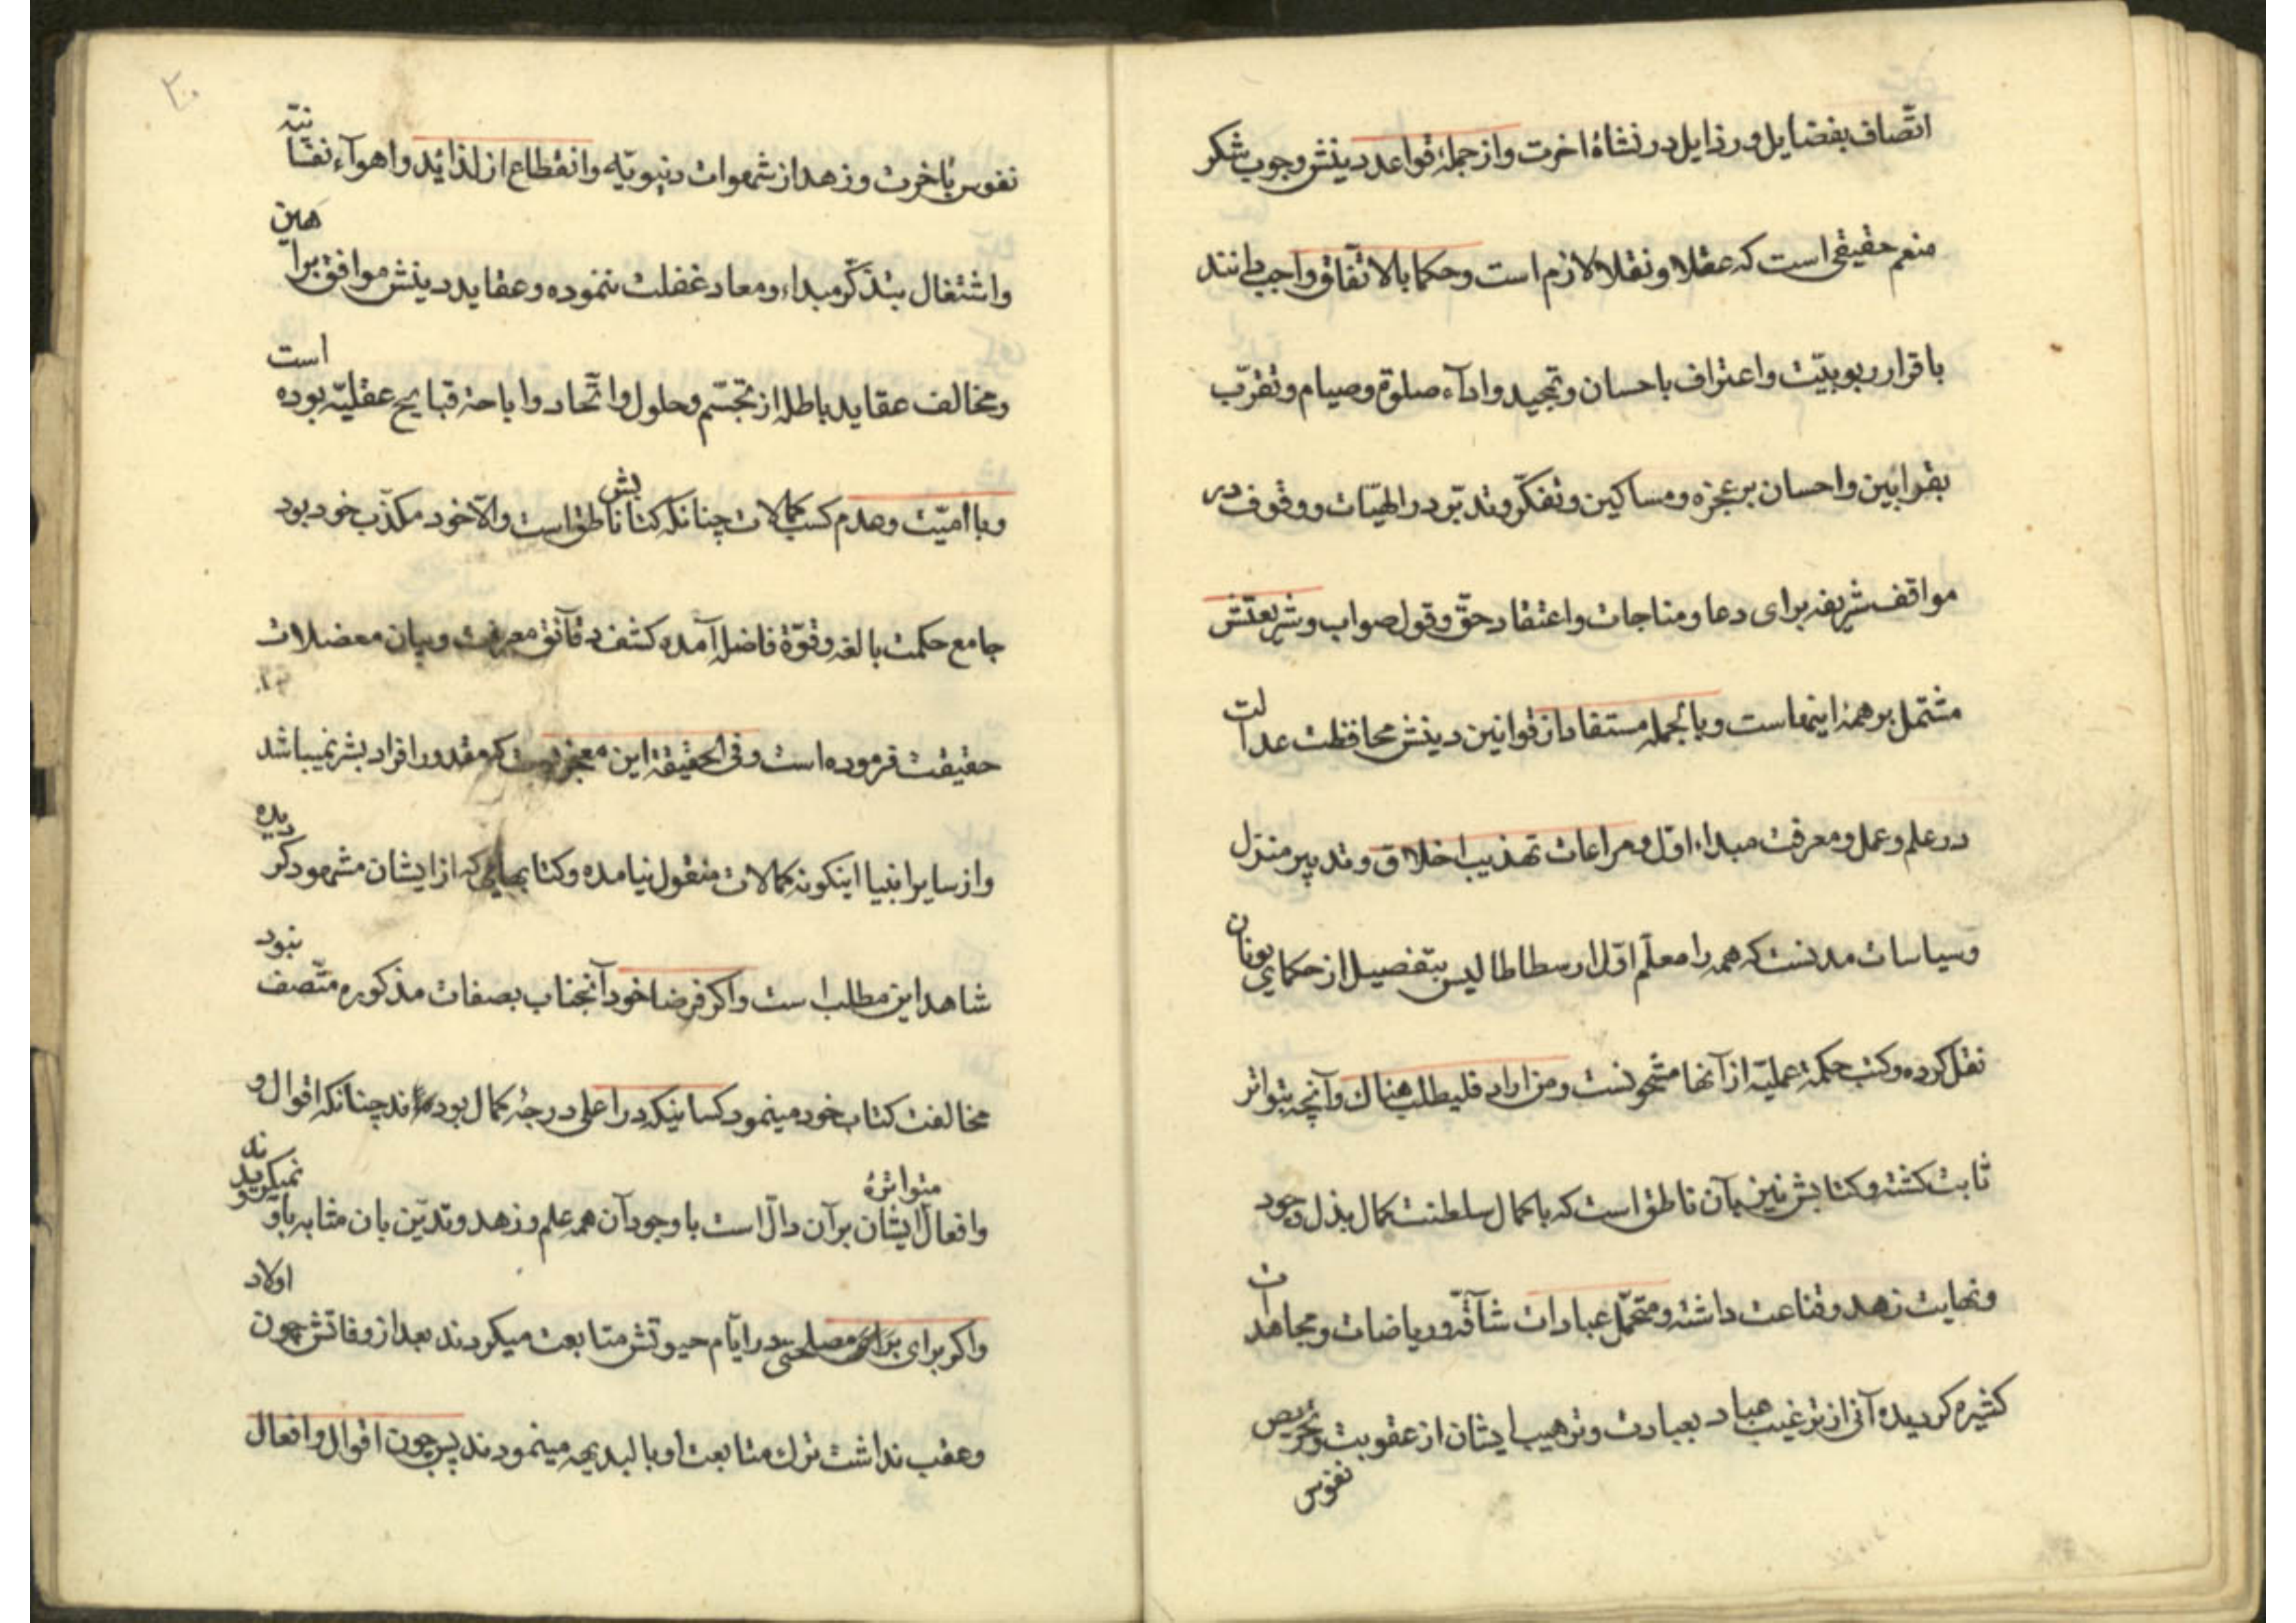 اتّصاف بفضایل و رذایل در نشاهٔ اخرت و از جملهٔ قواعد دینش وجوب شکر
منعم حقیقی است که عقلا و نقلا لازم است و حکما بالاتّفاق واجب دانند
باقرار ربوبیّت و اعتراف باحسان و تمجید و اداء صلوة و صیام و تقرّب
بقرابین و احسان بر عجزه و مساکین و تفکّر و تدبّر در الهیّات و وقوف در
مواقف شریفه برای دعا و مناجات و اعتقاد حقّ و قول صواب و شریعتش
مشتمل بر همهٔ اینهاست و بالجمله مستفاد از قوانین دینش محافظت عدالت
در علم و عمل و معرفت مبداء اوّل و مراعات تهذیب اخلاق و تدبیر منزل
و سیاسات مدنست که همه را معلّم اوّل ارسطاطالیس بتفصیل از حکمای یونان
نقل کرده و کتب حکمة عملیّه از آنها مشحونست و من اراد فلیطلب هناك و آنچه بتواتر
ثابت کشته و کتابش نیز بآن ناطق است که با کمال سلطنت کمال بذل وجود
و نهایت زهد و قناعت داشته و متحمّل عبادات شاقّه و ریاضات و مجاهدات
کثیره کردیده آنی از ترغیب عباد بعبادت و ترهیب ایشان از عقوبت و تحریص
نفوس
۲۰
نفوس باخرت و زهد از شهوات دنیویّه و انقطاع از لذائد و اهوآء نفسانیّه
و اشتغال بتذکّر مبداء و معاد غفلت ننموده و عقاید دینش موافق براهین
و مخالف عقاید باطله از تجسّم و حلول و اتّحاد و اباحة قبایح عقلیّه بوده است
و با امیّت و عدم کسب کمالات چنانکه کتابش ناطق است و الّا خود مکذّب خود بود
جامع حکمت بالغه و قوّة فاضله آمده کشف دقآئق معرفت و بیان معضلات
حقیقت فرموده است و فی الحقیقة این معجزیست که مقدور افراد بشر نمیباشد
و از سایر انبیا اینکونه کمالات منقول نیامده و کتابهایی که از ایشان مشهود کردیده
شاهد این مطلب است و اکر فرضا خود آنجناب بصفات مذکوره متّصف نبود
مخالفت کتاب خود مینمود کسانیکه در اعلی درجهٔ کمال بوده‌اند چنانکه اقوال و
و افعال متواترهٔ ایشان بر آن دالّ است با وجود آن همه علم و زهد و تدیّن بان مثابه باو نمیکرویدند
و اکر برای مصلحتی در ایّام حیوتش متابعت میکردند بعد از وفاتش چون اولاد
و عقب نداشت ترك متابعت او بالبدیهه مینمودند پس چون اقوال و افعال